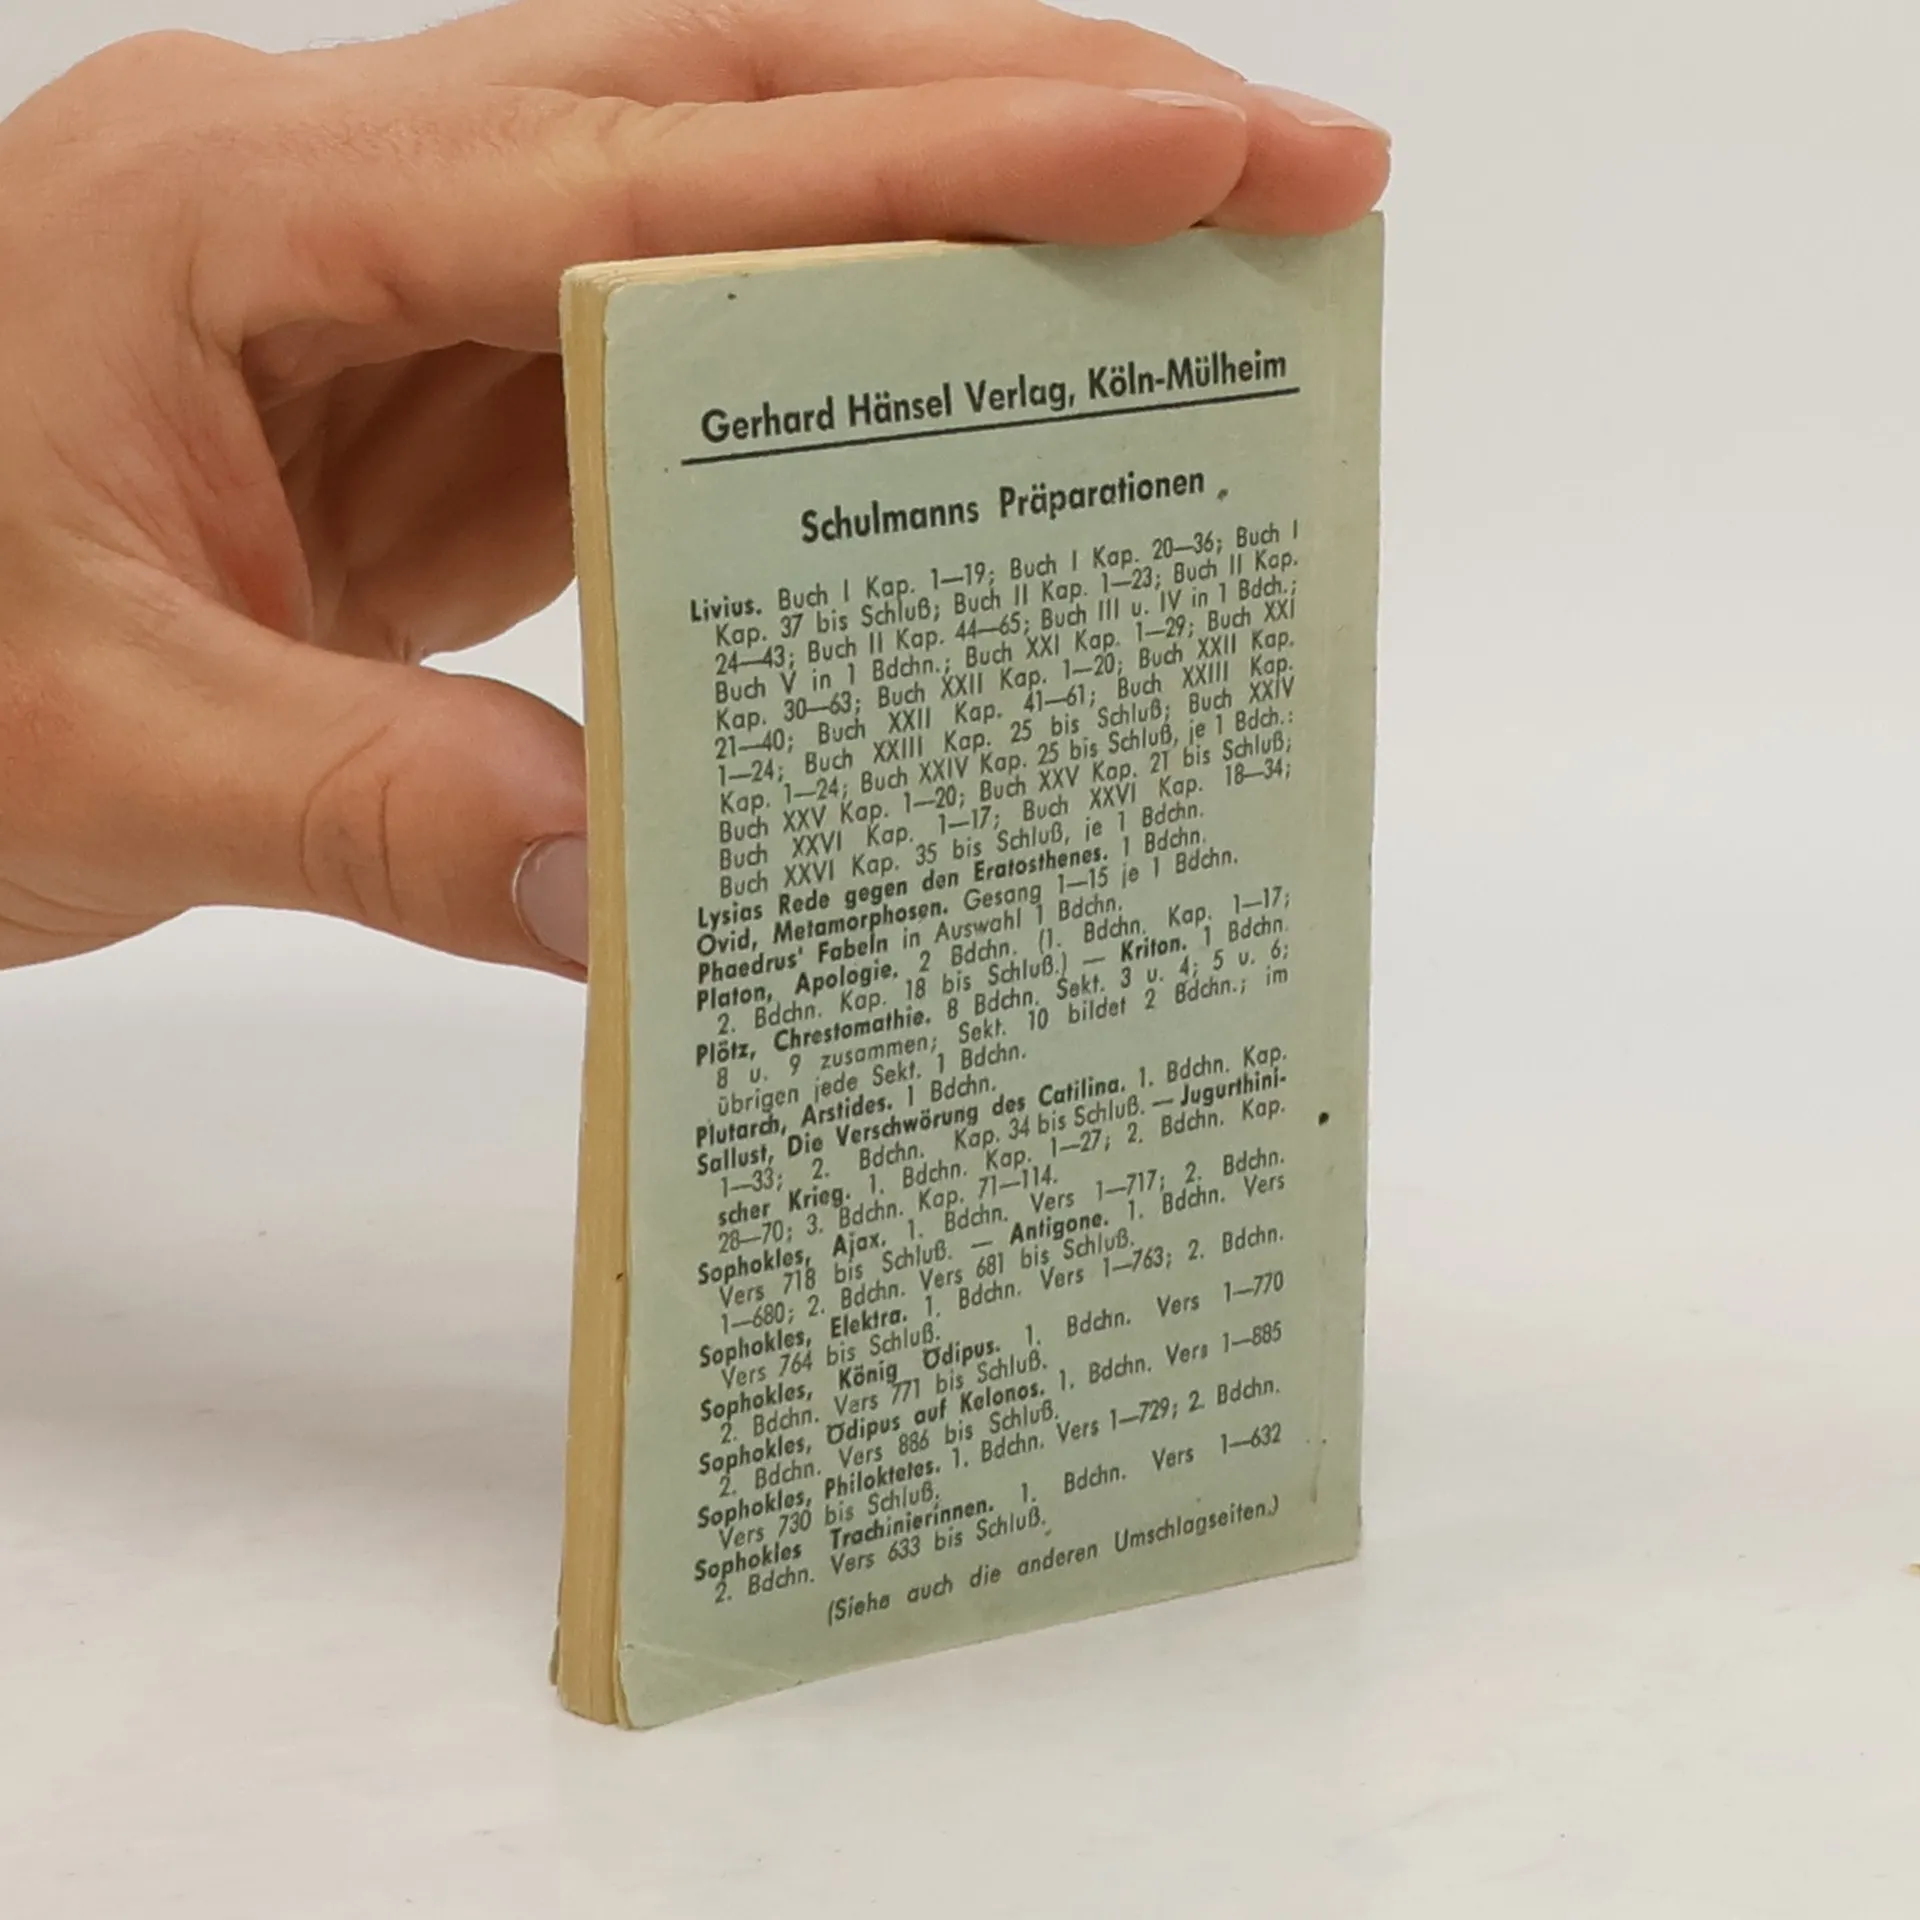 Gerhard Hänsel Verlag, Köln-Mülheim
Schulmanns Präparationen
Livius. Buch I Kap. 1—19; Buch I Kap. 20—36; Buch I
Kap. 37 bis Schluß; Buch II Kap. 1—23; Buch II Kap.
24—43; Buch II Kap. 44—65; Buch III u. IV in 1 Bdch.;
Buch V in 1 Bdchn.; Buch XXI Kap. 1—29; Buch XXI
Kap. 30—63; Buch XXII Kap. 1—20; Buch XXII Kap.
21—40; Buch XXII Kap. 41—61; Buch XXIII Kap.
1—24; Buch XXIII Kap. 25 bis Schluß; Buch XXIV
Kap. 1—24; Buch XXIV Kap. 25 bis Schluß, je 1 Bdch.:
Buch XXV Kap. 1—20; Buch XXV Kap. 21 bis Schluß;
Buch XXVI Kap. 1—17; Buch XXVI Kap. 18—34;
Buch XXVI Kap. 35 bis Schluß, je 1 Bdchn.
Lysias Rede gegen den Eratosthenes. 1 Bdchn.
Ovid, Metamorphosen. Gesang 1—15 je 1 Bdchn.
Phaedrus' Fabeln in Auswahl 1 Bdchn.
Platon, Apologie. 2 Bdchn. (1. Bdchn. Kap. 1—17;
2. Bdchn. Kap. 18 bis Schluß.) — Kriton. 1 Bdchn.
Plötz, Chrestomathie. 8 Bdchn. Sekt. 3 u. 4; 5 u. 6;
8 u. 9 zusammen; Sekt. 10 bildet 2 Bdchn.; im
übrigen jede Sekt. 1 Bdchn.
Plutarch, Arstides. 1 Bdchn.
Sallust, Die Verschwörung des Catilina. 1. Bdchn. Kap.
1—33; 2. Bdchn. Kap. 34 bis Schluß. — Jugurthini-
scher Krieg. 1. Bdchn. Kap. 1—27; 2. Bdchn. Kap.
28—70; 3. Bdchn. Kap. 71—114.
Sophokles, Ajax. 1. Bdchn. Vers 1—717; 2. Bdchn.
Vers 718 bis Schluß. — Antigone. 1. Bdchn. Vers
1—680; 2. Bdchn. Vers 681 bis Schluß.
Sophokles, Elektra. 1. Bdchn. Vers 1—763; 2. Bdchn.
Vers 764 bis Schluß.
Sophokles, König Ödipus. 1. Bdchn. Vers 1—770
2. Bdchn. Vers 771 bis Schluß.
Sophokles, Ödipus auf Kolonos. 1. Bdchn. Vers 1—885
2. Bdchn. Vers 886 bis Schluß.
Sophokles, Philoktetes. 1. Bdchn. Vers 1—729; 2. Bdchn.
Vers 730 bis Schluß.
Sophokles Trachinierinnen. 1. Bdchn. Vers 1—632
2. Bdchn. Vers 633 bis Schluß.
(Siehe auch die anderen Umschlagseiten.)